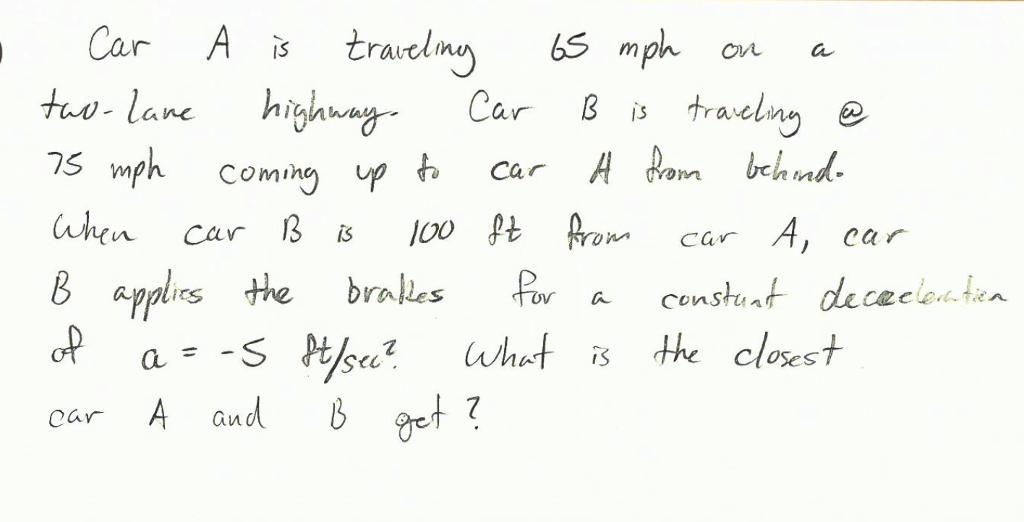 Car A is traveling 65 mph on a
two-lane highway. Car B is traveling @
75 mph coming up to car A from behind.
When car B is 100 ft from car A, car
B applies the brakes for a constant deceeleration
of a = -5 ft/sec². What is the closest
car A and B get?